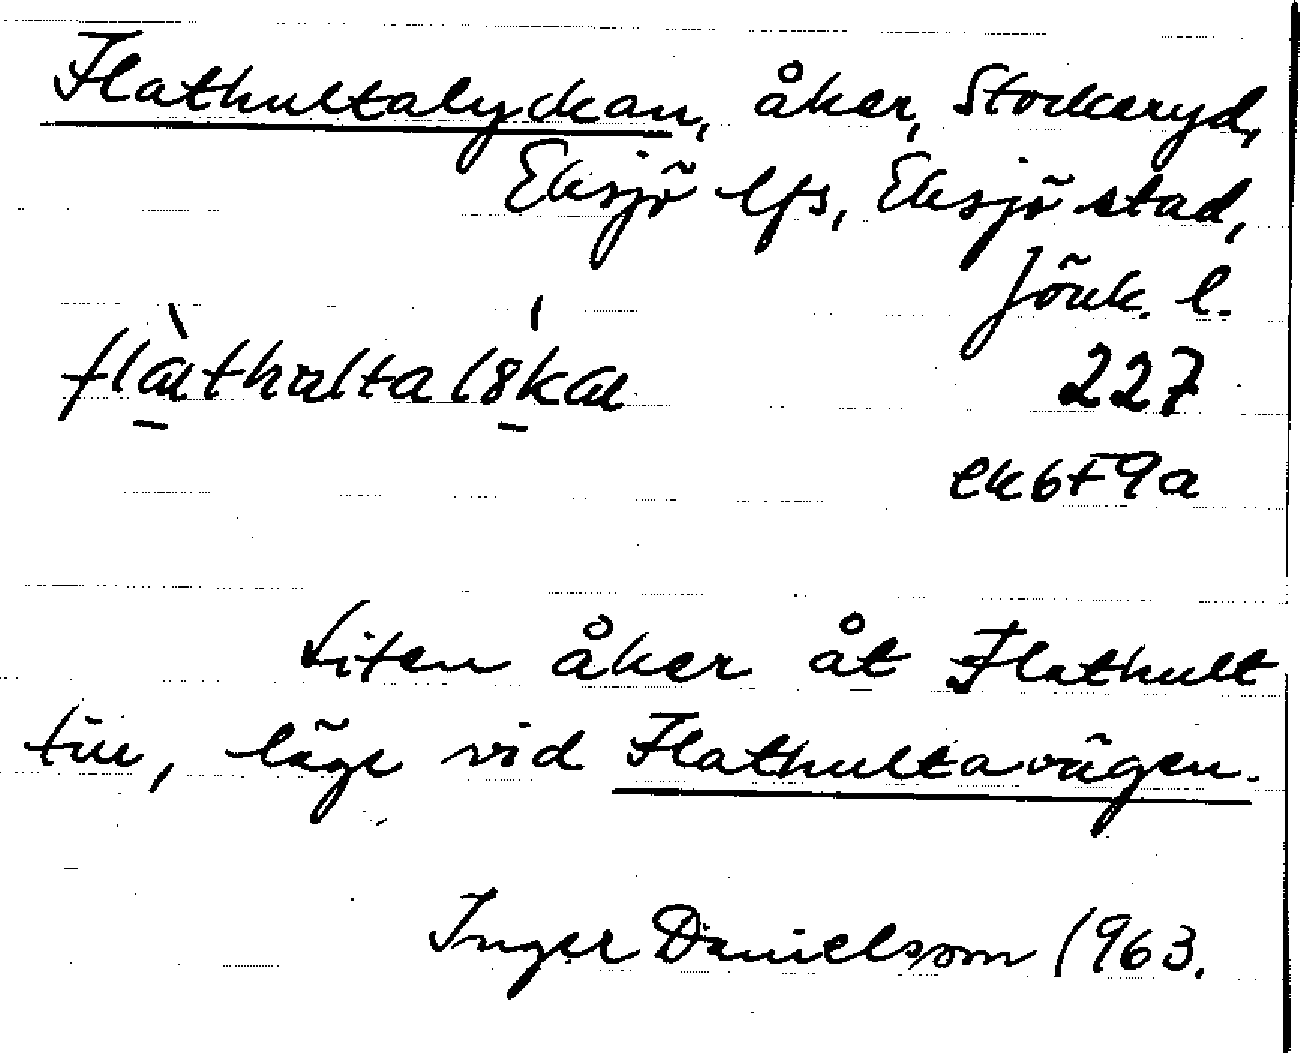 Flathultalyckan, åker, Stockeryd,
Eksjö lfs, Eksjö stad,
Jönk. l.
227
ek6F9a
Liten åker åt Flathult
till, läge vid Flathultavägen.
Inger Danielsson 1963.